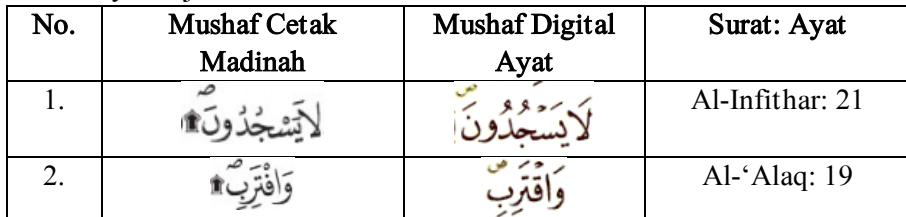 No. Mushaf Cetak Madinah Mushaf Digital Ayat Surat: Ayat
1. لَا يَسْجُدُونَ ۩ لَا يَسْجُدُونَ Al-Infithar: 21
2. وَاقْتَرِب ۩ وَاقْتَرِبْ Al-‘Alaq: 19